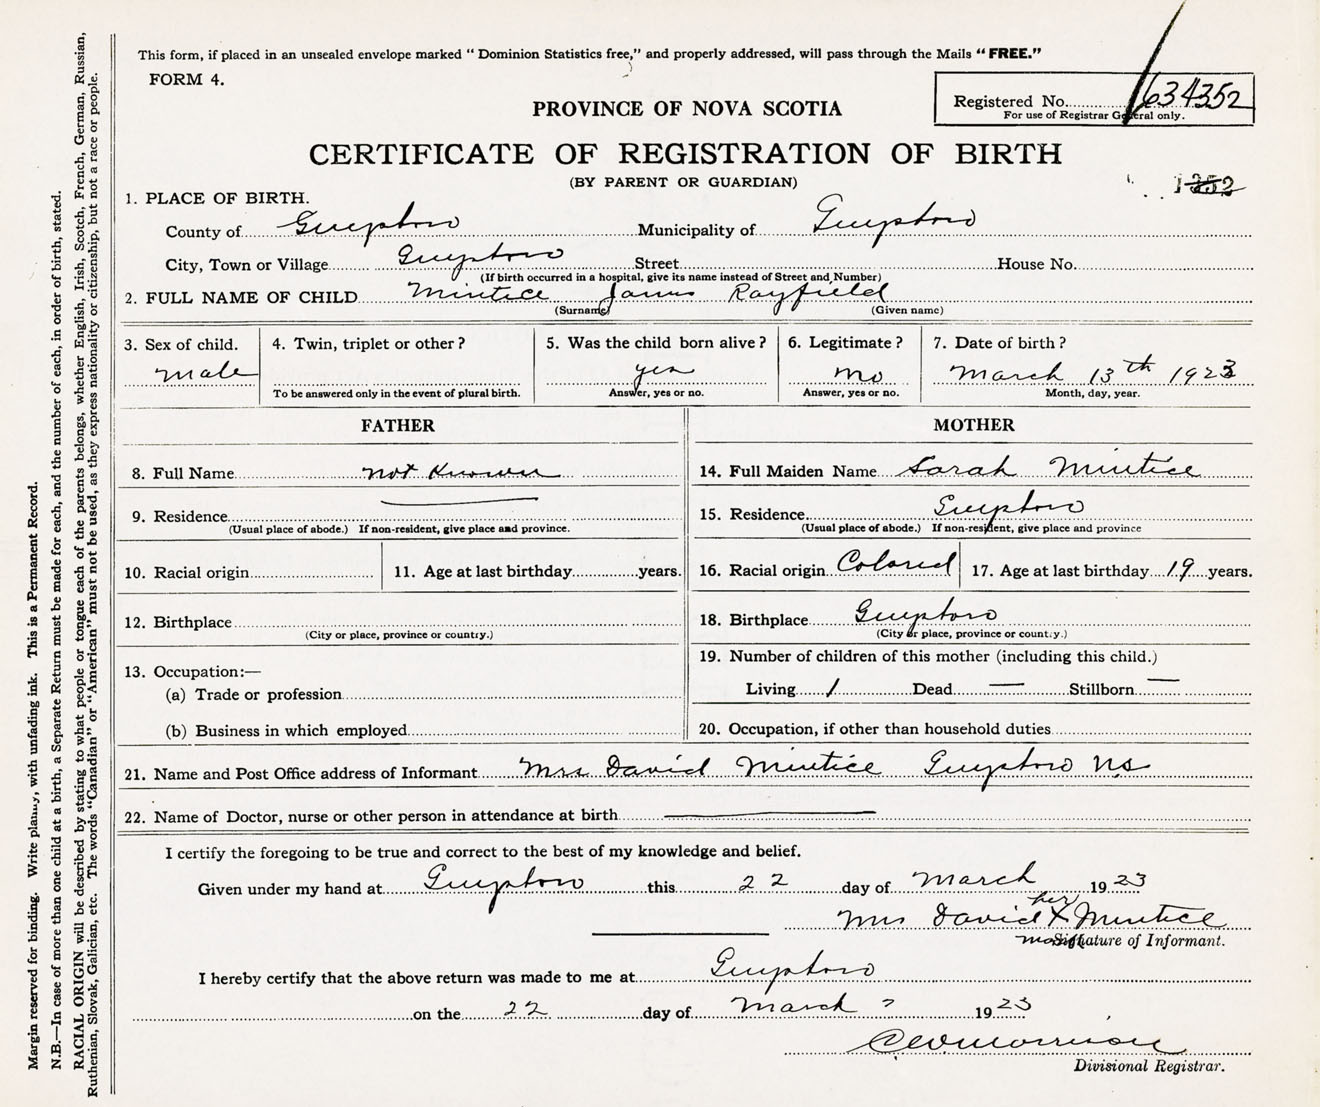 This form, if placed in an unsealed envelope marked “Dominion Statistics free,” and properly addressed, will pass through the Mails “FREE.”
FORM 4.
Registered No. 634352
For use of Registrar General only.
PROVINCE OF NOVA SCOTIA
CERTIFICATE OF REGISTRATION OF BIRTH
(BY PARENT OR GUARDIAN)
1. PLACE OF BIRTH.
County of Guysboro Municipality of Guysboro
City, Town or Village Guysboro Street House No.
(If birth occurred in a hospital, give its name instead of Street and Number)
2. FULL NAME OF CHILD Mintice James Rayfield
(Surname) (Given name)
3. Sex of child. 4. Twin, triplet or other? 5. Was the child born alive? 6. Legitimate? 7. Date of birth?
male yes no March 13th 1923
To be answered only in the event of plural birth. Answer, yes or no. Answer, yes or no. Month, day, year.
FATHER MOTHER
8. Full Name not known 14. Full Maiden Name Sarah Mintice
9. Residence 15. Residence Guysboro
(Usual place of abode.) If non-resident, give place and province. (Usual place of abode.) If non-resident, give place and province
10. Racial origin 11. Age at last birthday years. 16. Racial origin Colored 17. Age at last birthday 19 years.
12. Birthplace 18. Birthplace Guysboro
(City or place, province or country.) (City or place, province or country.)
13. Occupation:— 19. Number of children of this mother (including this child.)
(a) Trade or profession Living 1 Dead — Stillborn —
(b) Business in which employed 20. Occupation, if other than household duties
21. Name and Post Office address of Informant Mrs David Mintice Guysboro NS
22. Name of Doctor, nurse or other person in attendance at birth
I certify the foregoing to be true and correct to the best of my knowledge and belief.
Given under my hand at Guysboro this 22 day of March 1923
Mrs David her X Mintice
mark Signature of Informant.
I hereby certify that the above return was made to me at Guysboro
on the 22 day of March 1923
C W Morrison
Divisional Registrar.
Margin reserved for binding. Write plainly, with unfading ink. This is a Permanent Record.
N.B.—In case of more than one child at a birth, a Separate Return must be made for each, and the number of each, in order of birth, stated.
RACIAL ORIGIN will be described by stating to what people or tongue each of the parents belongs, whether English, Irish, Scotch, French, German, Russian,
Ruthenian, Slovak, Galician, etc. The words “Canadian” or “American” must not be used, as they express nationality or citizenship, but not a race or people.